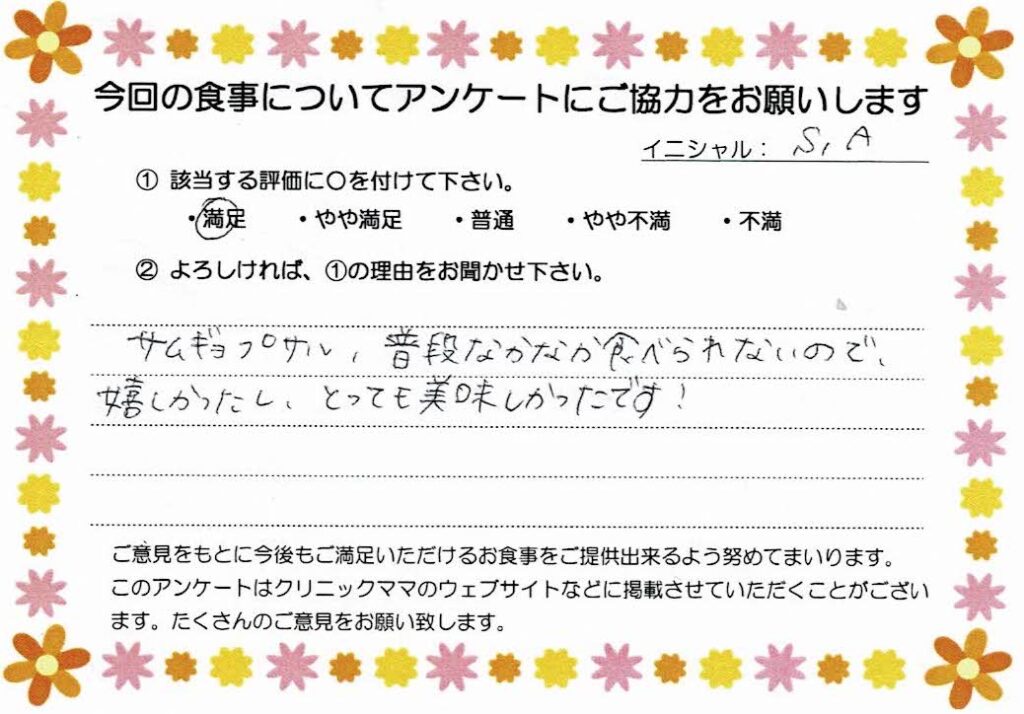 今回の食事についてアンケートにご協力をお願いします
イニシャル： S, A
① 該当する評価に〇を付けて下さい。
・満足 ・やや満足 ・普通 ・やや不満 ・不満
② よろしければ、①の理由をお聞かせ下さい。
サムギョプサル、普段なかなか食べられないので、
嬉しかったし、とっても美味しかったです！
ご意見をもとに今後もご満足いただけるお食事をご提供出来るよう努めてまいります。
このアンケートはクリニックママのウェブサイトなどに掲載させていただくことがござい
ます。たくさんのご意見をお願い致します。